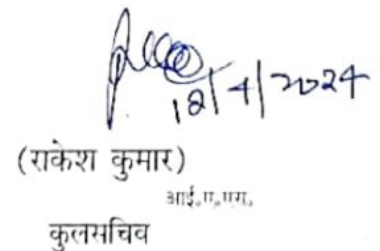 18/4/2024
(राकेश कुमार)
आई.ए.एस.
कुलसचिव